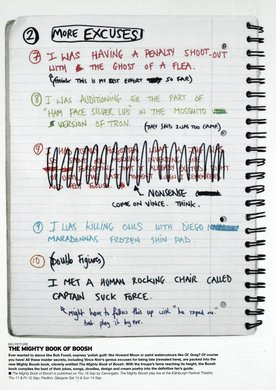 2 MORE EXCUSES
7 I WAS HAVING A PENALTY SHOOT-OUT
WITH THE GHOST OF A FLEA.
(THINK THIS IS MY BEST EFFORT SO FAR)
8 I WAS AUDITIONING FOR THE PART OF
"HAM FACE SILVER LIPS" IN THE MOSQUITO
VERSION OF TRON.
(THEY SAID I WAS TOO CAMP)
9
NONSENSE
COME ON VINCE. THINK.
9 I WAS KILLING OWLS WITH DIEGO
MARADONNAS FROZEN SHIN PAD.
10 (Double Figures)
I MET A HUMAN ROCKING CHAIR CALLED
CAPTAIN SUCK FORCE.
Might have to follow this up with "he raped me"
but play it by ear.
BIG PICTURE
THE MIGHTY BOOK OF BOOSH
Ever wanted to dance like Bob Fossil, express 'polish guilt' like Howard Moon or paint watercolours like Ol' Greg? Of course
you have! All these insider secrets, including Vince Noir's genius excuses for being late (revealed here), are packed into the
new Mighty Boosh book, cleverly entitled The Mighty Book of Boosh. With the troupe's fervor reaching its height, the Boosh
book compiles the best of their jokes, songs, doodles, design and cream poetry into the definitive fan's guide.
The Mighty Book of Boosh is published on Thu 18 Sep by Canongate. The Mighty Boosh play live at the Edinburgh Festival Theatre,
Thu 11 & Fri 12 Sep; Pavilion, Glasgow Sat 13 & Sun 14 Sep.